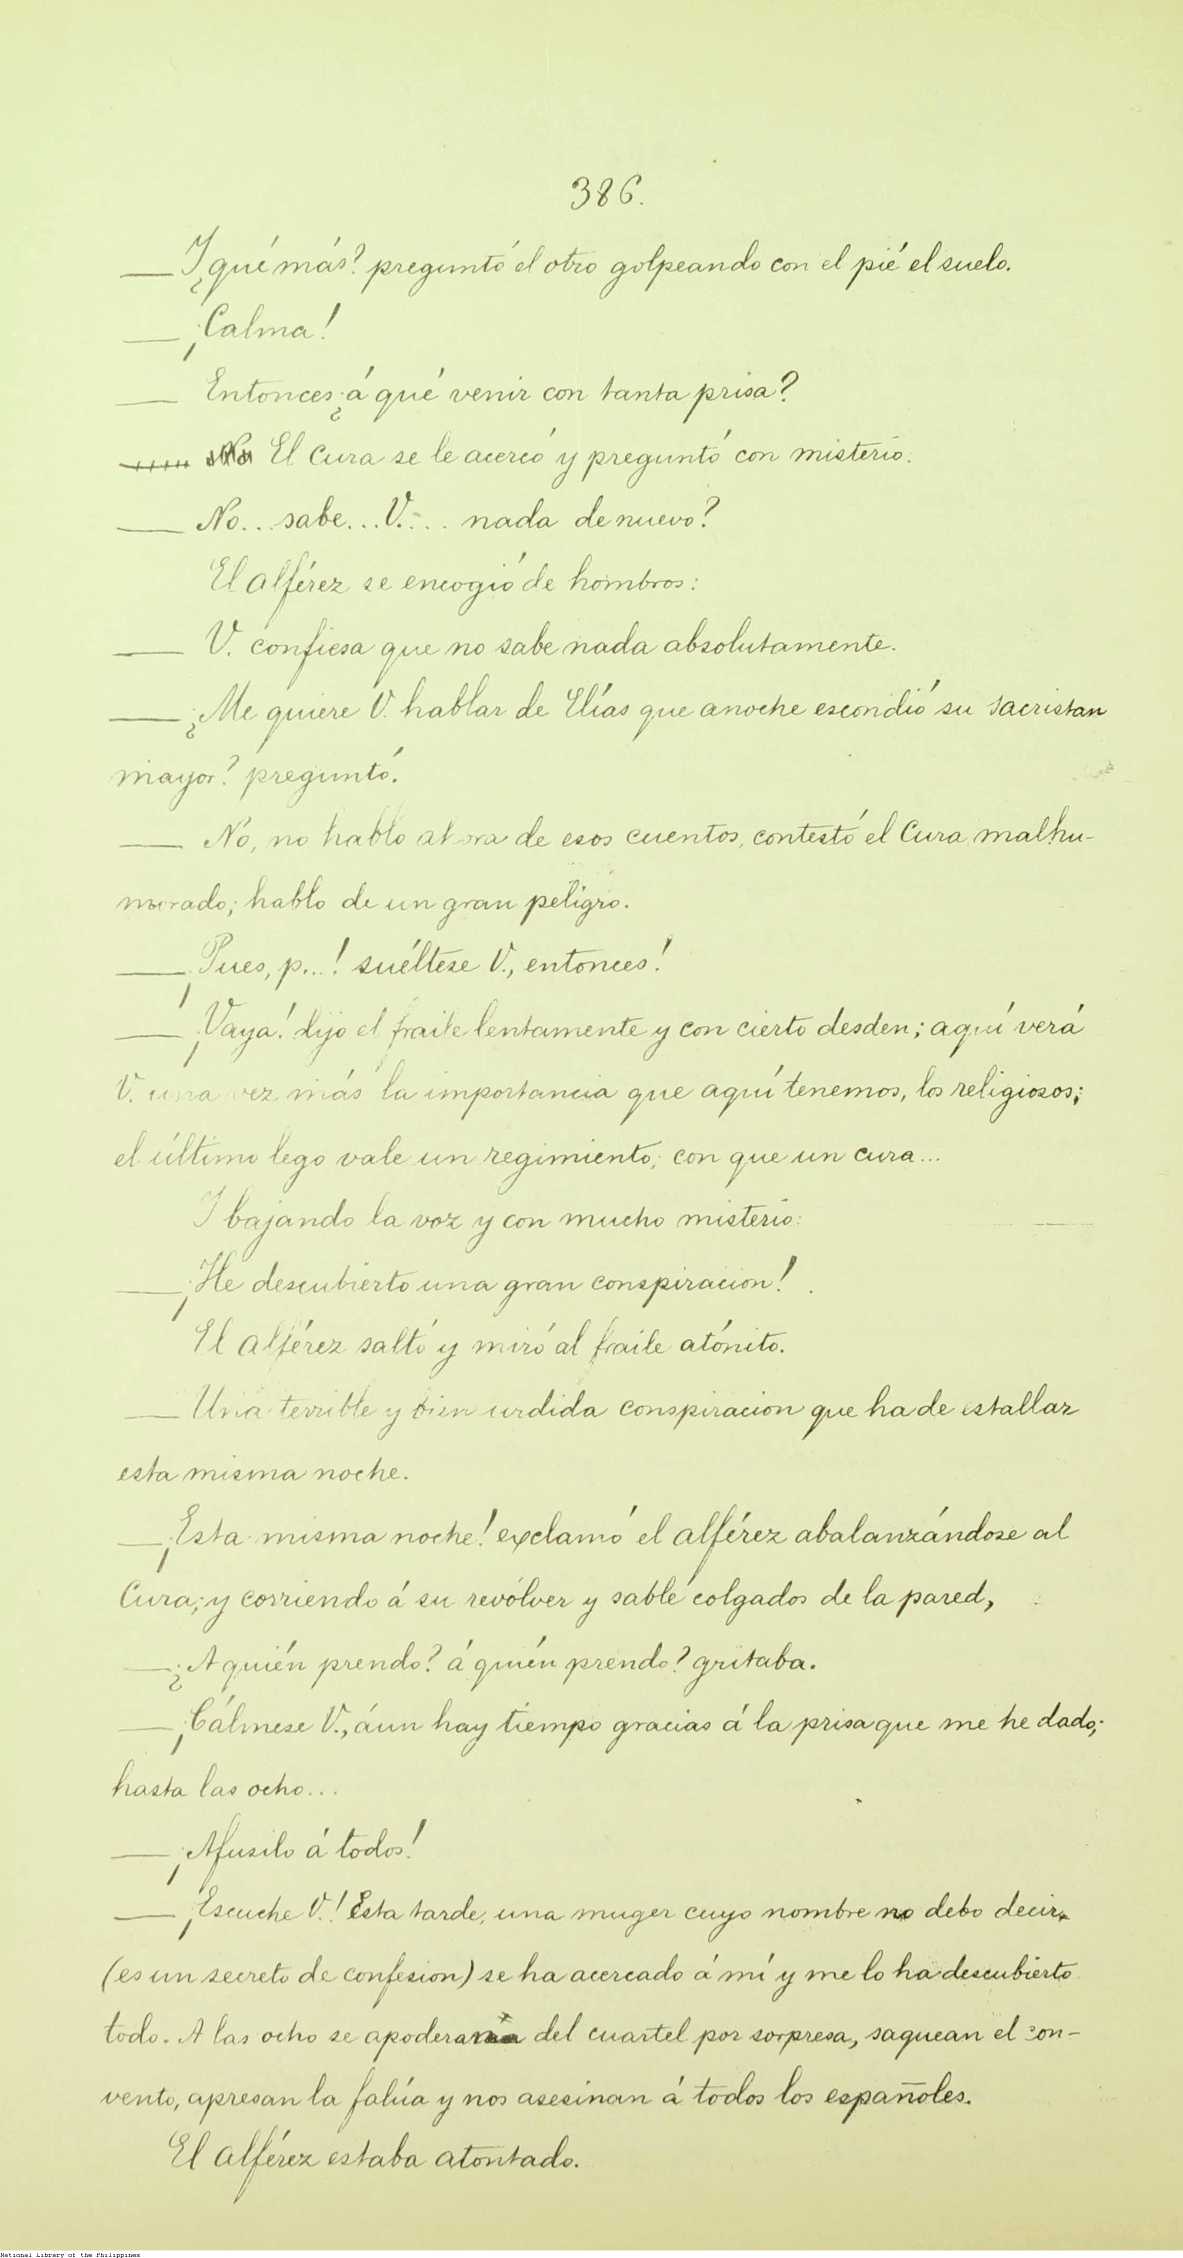 386.
— Y ¿qué más? preguntó el otro golpeando con el pié el suelo.
— ¡Calma!
— Entonces ¿á qué venir con tanta prisa?
El cura se le acercó y preguntó con misterio:
— No... sabe... V.... nada de nuevo?
El alférez se encogió de hombros:
— V. confiesa que no sabe nada absolutamente.
— ¿Me quiere V. hablar de Elías que anoche escondió su sacristan
mayor? preguntó.
— No, no hablo ahora de esos cuentos, contestó el Cura malhu-
morado; hablo de un gran peligro.
— ¡Pues, p...! suéltese V., entonces!
— ¡Vaya! dijo el fraile lentamente y con cierto desden; aquí verá
V. una vez más la importancia que aquí tenemos, los religiosos;
el último lego vale un regimiento; con que un cura...
Y bajando la voz y con mucho misterio:
— ¡He descubierto una gran conspiracion!
El alférez saltó y miró al fraile atónito.
— Una terrible y bien urdida conspiracion que ha de estallar
esta misma noche.
— ¡Esta misma noche! exclamó el alférez abalanzándose al
Cura; y corriendo á su revólver y sable colgados de la pared,
— ¿A quién prendo? á quién prendo? gritaba.
— ¡Cálmese V., áun hay tiempo gracias á la prisa que me he dado;
hasta las ocho...
— ¡Afusilo á todos!
— ¡Escuche V.! Esta tarde, una muger cuyo nombre no debo decir
(es un secreto de confesion) se ha acercado á mí y me lo ha descubierto
todo. A las ocho se apoderan del cuartel por sorpresa, saquean el con-
vento, apresan la falúa y nos asesinan á todos los españoles.
El alférez estaba atontado.
National Library of the Philippines